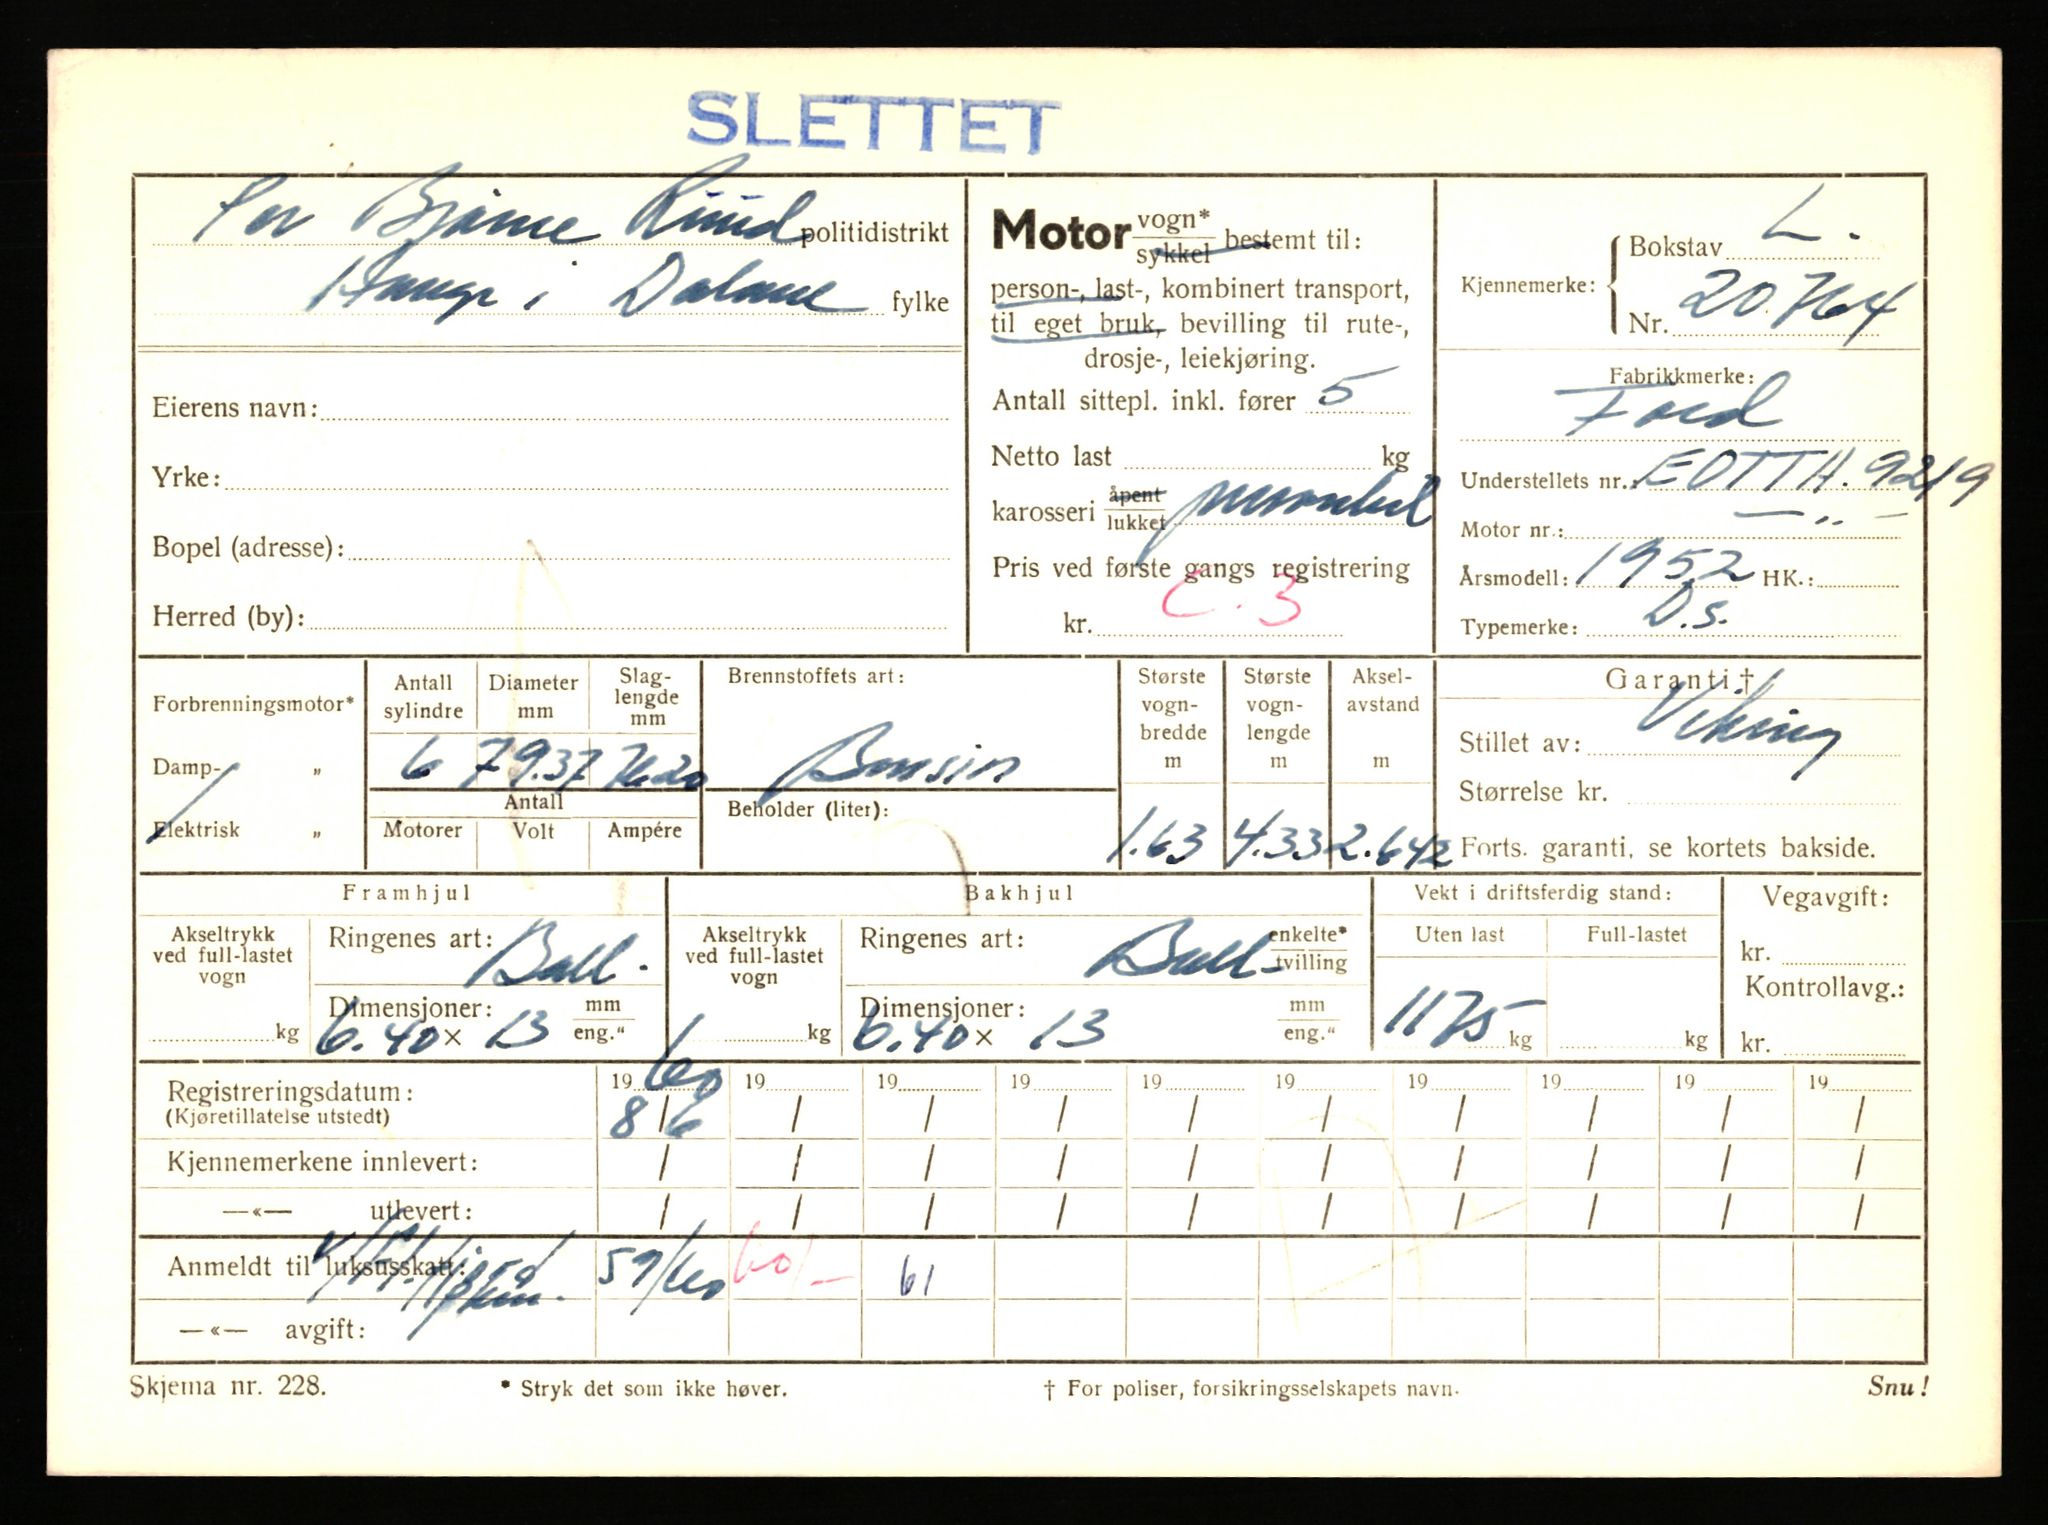 SLETTET
Per Bjarne Ruud politidistrikt
Hauge i Dalane fylke
Eierens navn:
Yrke:
Bopel (adresse):
Herred (by):
Motor vogn* sykkel bestemt til:
person-, last-, kombinert transport,
til eget bruk, bevilling til rute-,
drosje-, leiekjøring.
Antall sittepl. inkl. fører 5
Netto last kg
karosseri åpent lukket personbil
Pris ved første gangs registrering
kr. C. 3
Kjennemerke: Bokstav L.
Nr. 20764
Fabrikkmerke:
Ford
Understellets nr. EOTTA.9219
Motor nr.: — " —
Årsmodell: 1952 HK.:
Typemerke: D.s.
Forbrenningsmotor*
Damp- „
Elektrisk „
Antall sylindre Diameter mm Slag-lengde mm
6 79.37 76.20
Antall
Motorer Volt Ampére
Brennstoffets art:
Bensin
Beholder (liter):
Største vogn-bredde m
1.63
Største vogn-lengde m
4.33
Aksel-avstand m
2.642
Garanti †
Stillet av: Viking
Størrelse kr.
Forts. garanti, se kortets bakside.
Framhjul
Akseltrykk ved full-lastet vogn
kg
Ringenes art: Ball.
Dimensjoner: mm
6.40 x 13 eng."
Bakhjul
Akseltrykk ved full-lastet vogn
kg
Ringenes art: Ball- enkelte* tvilling
Dimensjoner: mm
6.40 x 13 eng."
Vekt i driftsferdig stand:
Uten last Full-lastet
1175 kg kg
Vegavgift:
kr.
Kontrollavg.:
kr.
Registreringsdatum: 19 60 19 19 19 19 19 19 19 19 19
(Kjøretillatelse utstedt) 8/6 / / / / / / / / /
Kjennemerkene innlevert: / / / / / / / / / /
—«— utlevert: / / / / / / / / / /
Anmeldt til luksusskatt: 59/60 60/- 61
—«— avgift:
Skjema nr. 228. * Stryk det som ikke høver. † For poliser, forsikringsselskapets navn. Snu!